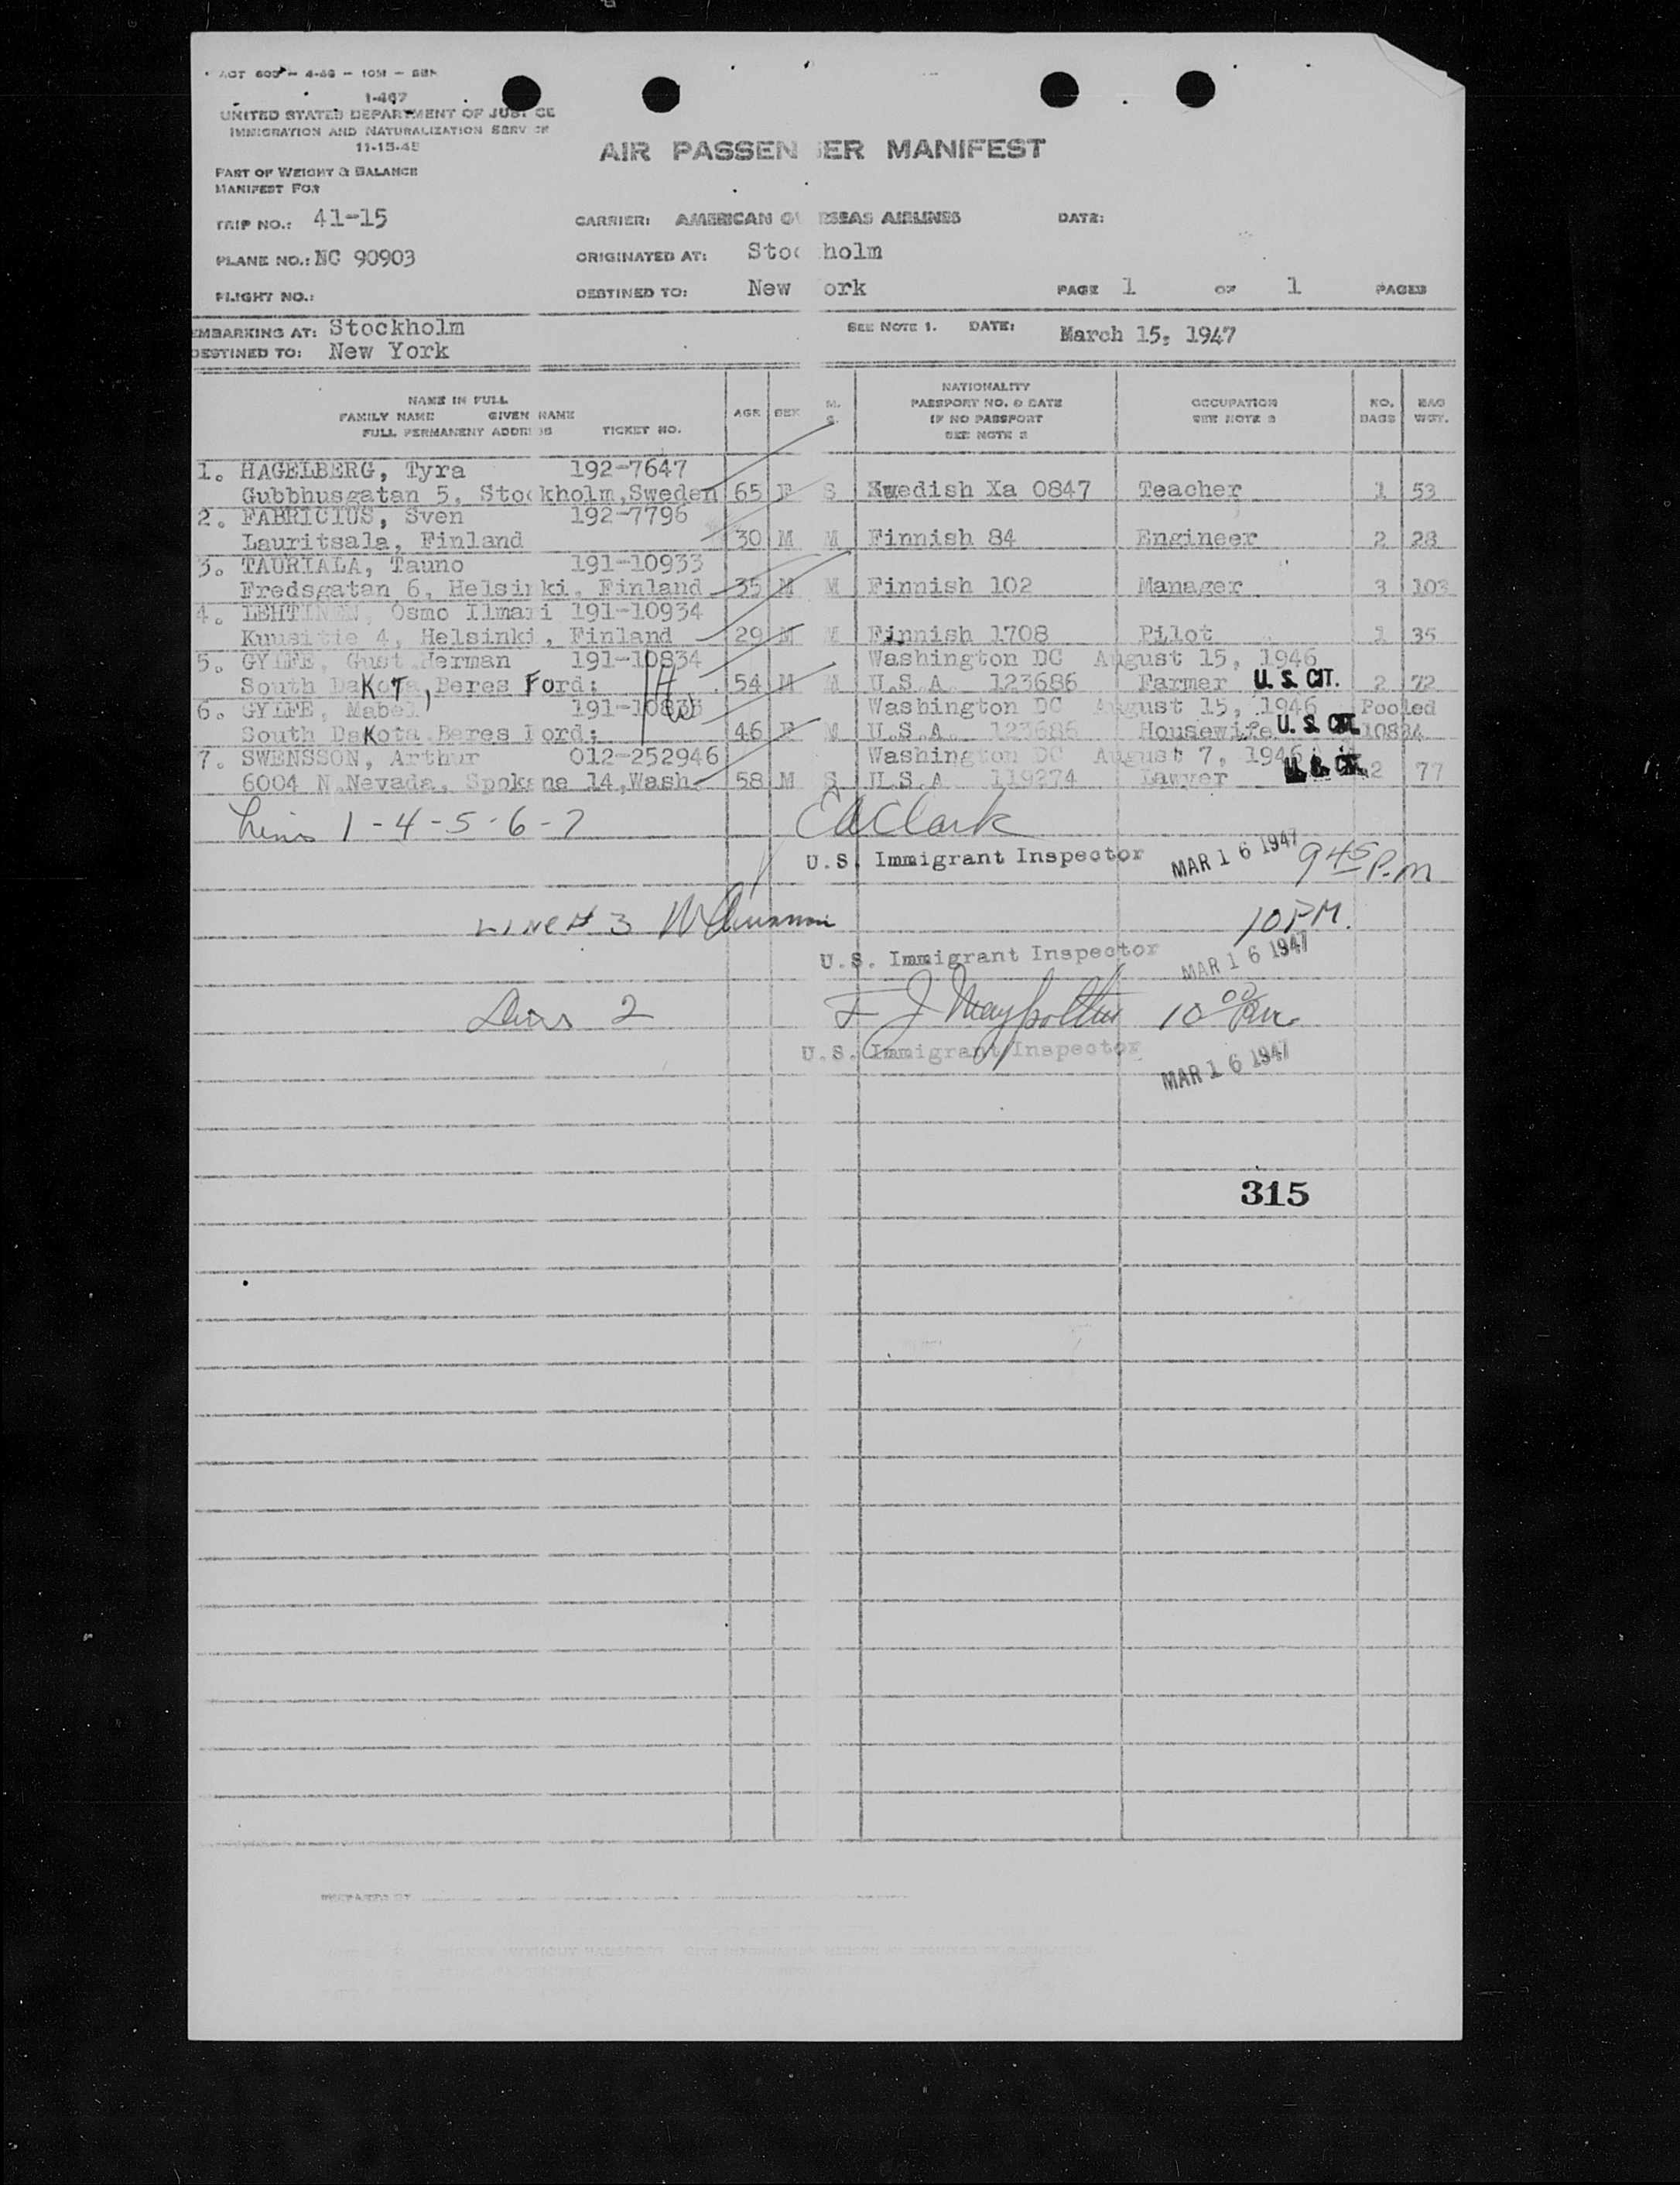 1-467
UNITED STATES DEPARTMENT OF JUSTICE
IMMIGRATION AND NATURALIZATION SERVICE
11-15-45
AIR PASSENGER MANIFEST
PART OF WEIGHT & BALANCE
MANIFEST FOR
TRIP NO.: 41-15 CARRIER: AMERICAN OVERSEAS AIRLINES DATE:
PLANE NO.: NC 90903 ORIGINATED AT: Stockholm
FLIGHT NO.: DESTINED TO: New York PAGE 1 OF 1 PAGES
EMBARKING AT: Stockholm SEE NOTE 1. DATE: March 15, 1947
DESTINED TO: New York
NAME IN FULL
FAMILY NAME GIVEN NAME
FULL PERMANENT ADDRESS TICKET NO.
AGE SEX M. S.
NATIONALITY
PASSPORT NO. & DATE
IF NO PASSPORT
SEE NOTE 2
OCCUPATION
SEE NOTE 3
NO. BAGS
BAG WGT.
1. HAGELBERG, Tyra 192-7647
Gubbhusgatan 5, Stockholm,Sweden 65 F S Swedish Xa 0847 Teacher 1 53
2. FABRICIUS, Sven 192-7796
Lauritsala, Finland 30 M M Finnish 84 Engineer 2 28
3. TAURIALA, Tauno 191-10933
Fredsgatan 6, Helsinki, Finland 35 M M Finnish 102 Manager 3 103
4. LEHTINEN, Osmo Ilmari 191-10934
Kuusitie 4, Helsinki, Finland 29 M M Finnish 1708 Pilot 1 35
5. GYLFE, Gust Herman 191-10834 Washington DC August 15, 1946
South DaKoTa, Beres Ford; H 54 M M U.S.A. 123686 Farmer U. S. CIT. 2 72
6. GYLFE, Mabel 191-10835 Washington DC August 15, 1946 Pooled
South DaKota Beres Ford; W 46 F M U.S.A. 123686 Housewife U. S. CIT. 10834
7. SWENSSON, Arthur 012-252946 Washington DC August 7, 1946
6004 N.Nevada, Spokane 14,Wash 58 M S U.S.A. 119274 Lawyer U. S. CIT. 2 77
Lines 1-4-5-6-7 EAClark
U.S. Immigrant Inspector MAR 16 1947 9 45 P.m
LINE # 3 10 PM.
U.S. Immigrant Inspector MAR 16 1947
Lines 2 10 00 Pm
U.S. Immigrant Inspector
MAR 16 1947
315
PREPARED BY